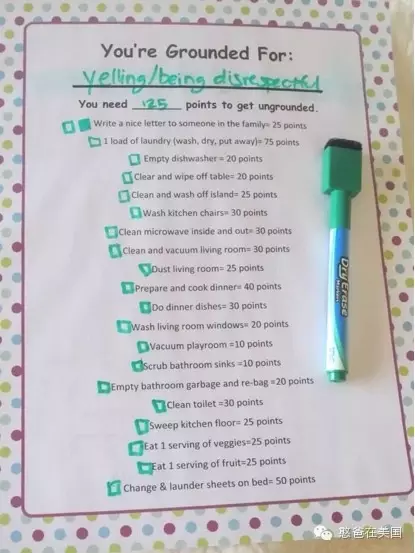 You're Grounded For:
Yelling/being disrespectful
You need 125 points to get ungrounded.
Write a nice letter to someone in the family= 25 points
1 load of laundry (wash, dry, put away)= 75 points
Empty dishwasher = 20 points
Clear and wipe off table= 20 points
Clean and wash off island= 25 points
Wash kitchen chairs= 30 points
Clean microwave inside and out= 30 points
Clean and vacuum living room= 30 points
Dust living room= 25 points
Prepare and cook dinner= 40 points
Do dinner dishes= 30 points
Wash living room windows= 20 points
Vacuum playroom =10 points
Scrub bathroom sinks =10 points
Empty bathroom garbage and re-bag =20 points
Clean toilet =30 points
Sweep kitchen floor= 25 points
Eat 1 serving of veggies=25 points
Eat 1 serving of fruit=25 points
Change & launder sheets on bed= 50 points
Dry Erase
Markers
憨爸在美国